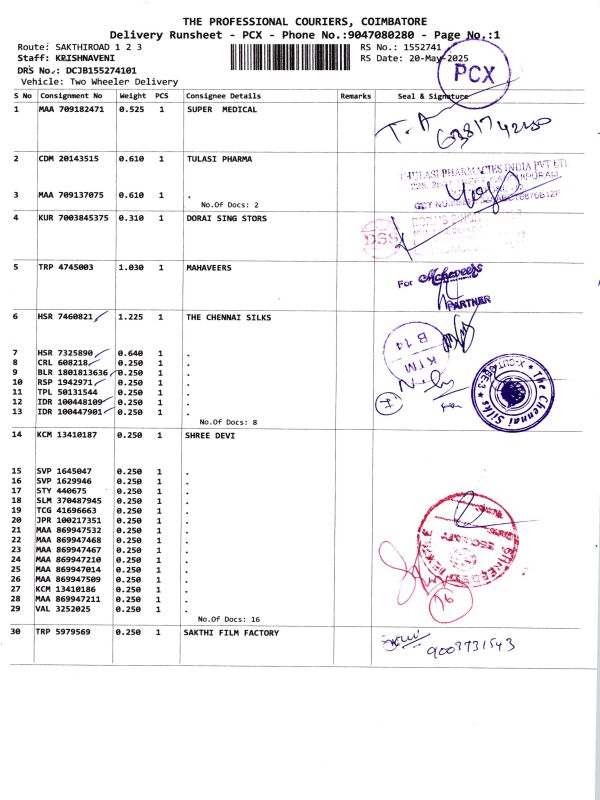 THE PROFESSIONAL COURIERS, COIMBATORE
Delivery Runsheet - PCX - Phone No.:9047080280 - Page No.:1
Route: SAKTHIROAD 1 2 3
RS No.: 1552741
Staff: KRISHNAVENI
RS Date: 20-May-2025
DRS No.: DCJB155274101
Vehicle: Two Wheeler Delivery
PCX
S No Consignment No Weight PCS Consignee Details Remarks Seal & Signature
1 MAA 709182471 0.525 1 SUPER MEDICAL
2 CDM 20143515 0.610 1 TULASI PHARMA
THULASI PHARMACIES INDIA PVT LTD
3 MAA 709137075 0.610 1 .
No.Of Docs: 2
4 KUR 7003845375 0.310 1 DORAI SING STORS
DSS
5 TRP 4745003 1.030 1 MAHAVEERS
For Mahaveers
PARTNER
6 HSR 7460821 1.225 1 THE CHENNAI SILKS
B 14
KTM
7 HSR 7325890 0.640 1 .
8 CRL 608218 0.250 1 .
9 BLR 1801813636 0.250 1 .
10 RSP 1942971 0.250 1 .
11 TPL 50131544 0.250 1 .
12 IDR 100448109 0.250 1 .
13 IDR 100447901 0.250 1 .
The Chennai Silks
No.Of Docs: 8
14 KCM 13410187 0.250 1 SHREE DEVI
15 SVP 1645047 0.250 1 .
16 SVP 1629946 0.250 1 .
17 STY 440675 0.250 1 .
18 SLM 370487945 0.250 1 .
19 TCG 41696663 0.250 1 .
20 JPR 100217351 0.250 1 .
21 MAA 869947532 0.250 1 .
22 MAA 869947468 0.250 1 .
23 MAA 869947467 0.250 1 .
24 MAA 869947210 0.250 1 .
25 MAA 869947014 0.250 1 .
26 MAA 869947509 0.250 1 .
27 KCM 13410186 0.250 1 .
28 MAA 869947211 0.250 1 .
29 VAL 3252025 0.250 1 .
SECURITY
16
No.Of Docs: 16
30 TRP 5979569 0.250 1 SAKTHI FILM FACTORY
9003731543